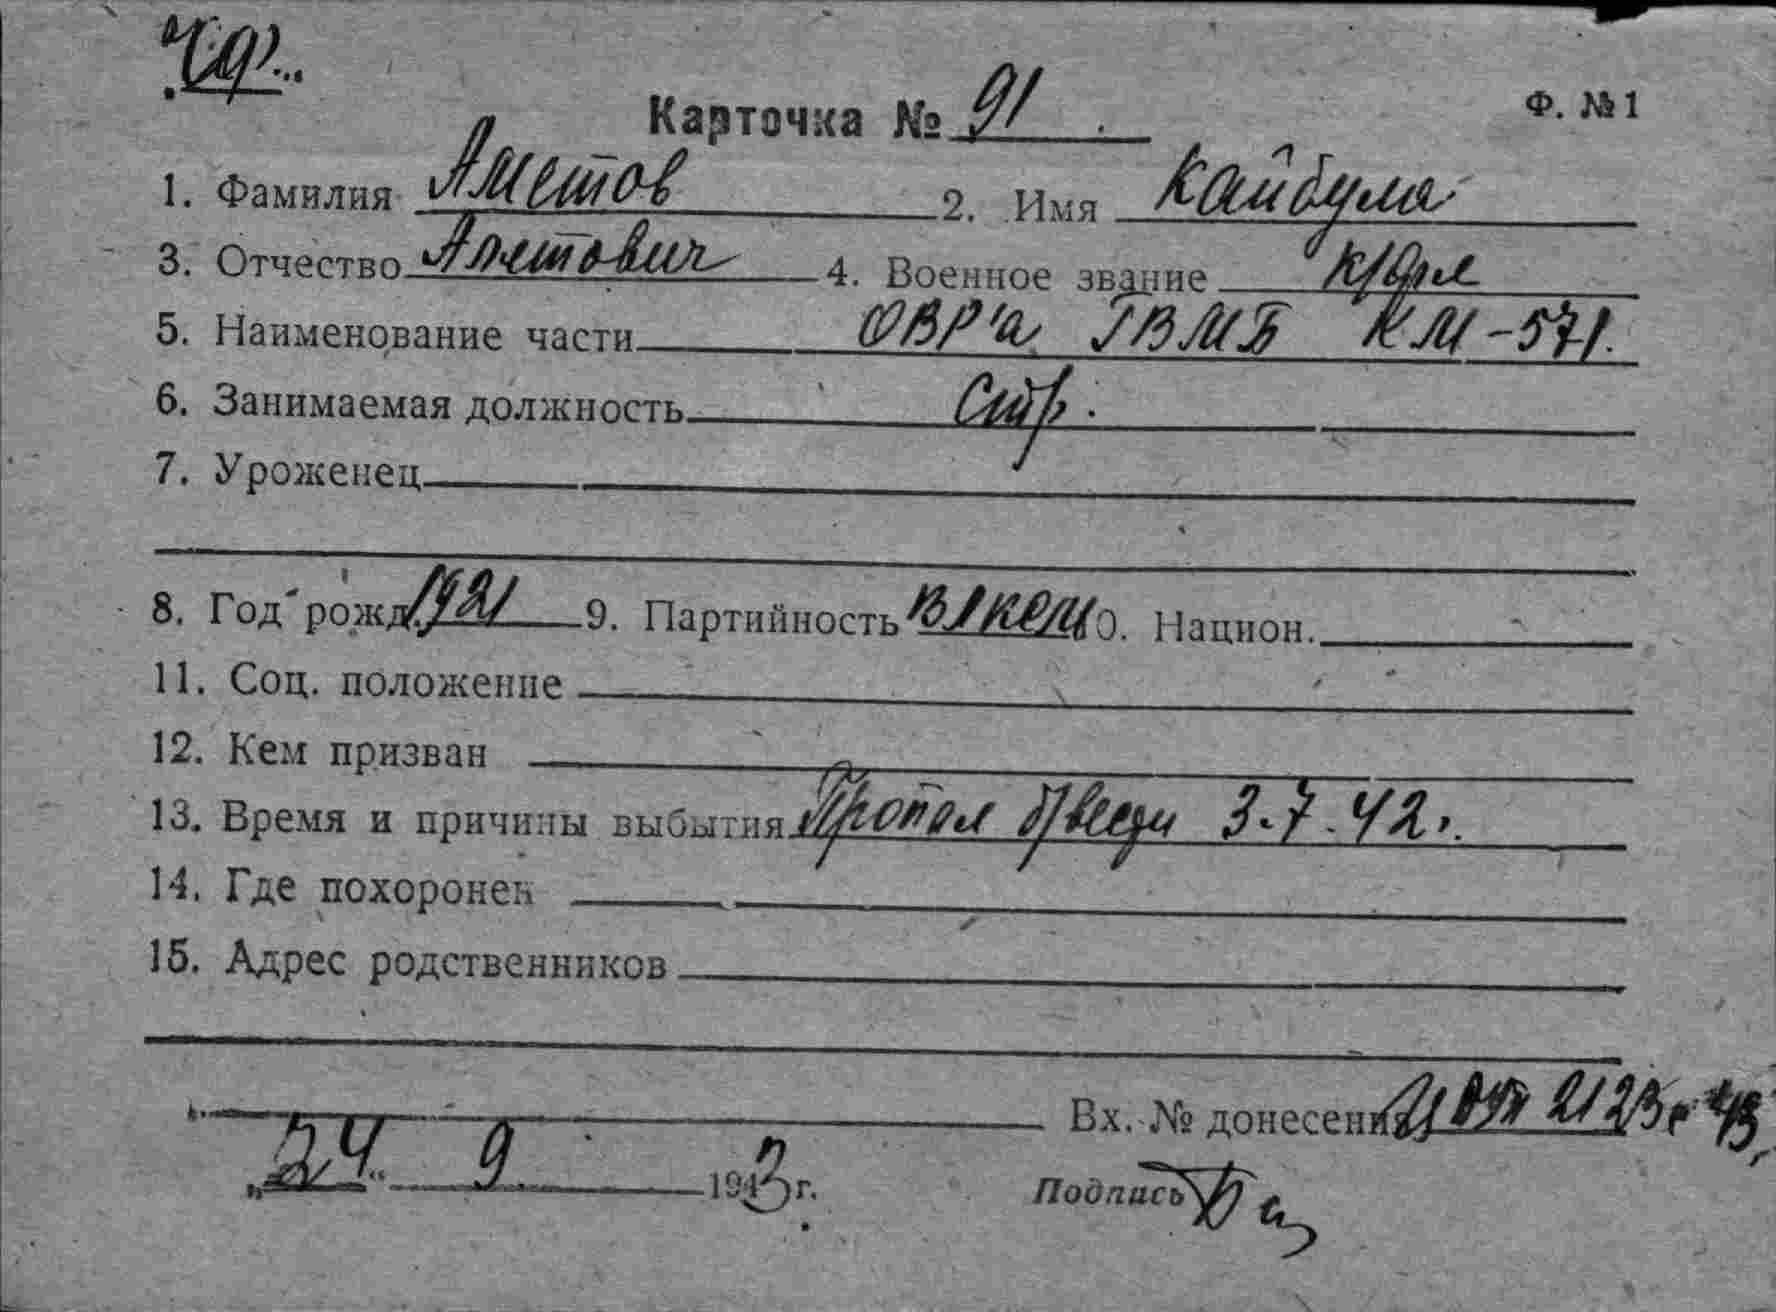 Ч.ф...
Карточка № 91 Ф. №1
1. Фамилия Аметов 2. Имя Кайбула
3. Отчество Аметович 4. Военное звание к/фл
5. Наименование части ОВР'а ГВМБ КМ-571.
6. Занимаемая должность Стр.
7. Уроженец
8. Год рожд. 1921 9. Партийность ВЛКСМ 10. Национ.
11. Соц. положение
12. Кем призван
13. Время и причины выбытия Пропал б/вести 3.7.42г.
14. Где похоронен
15. Адрес родственников
Вх. № донесения 2123с 43
„24“ 9 1943 г. Подпись